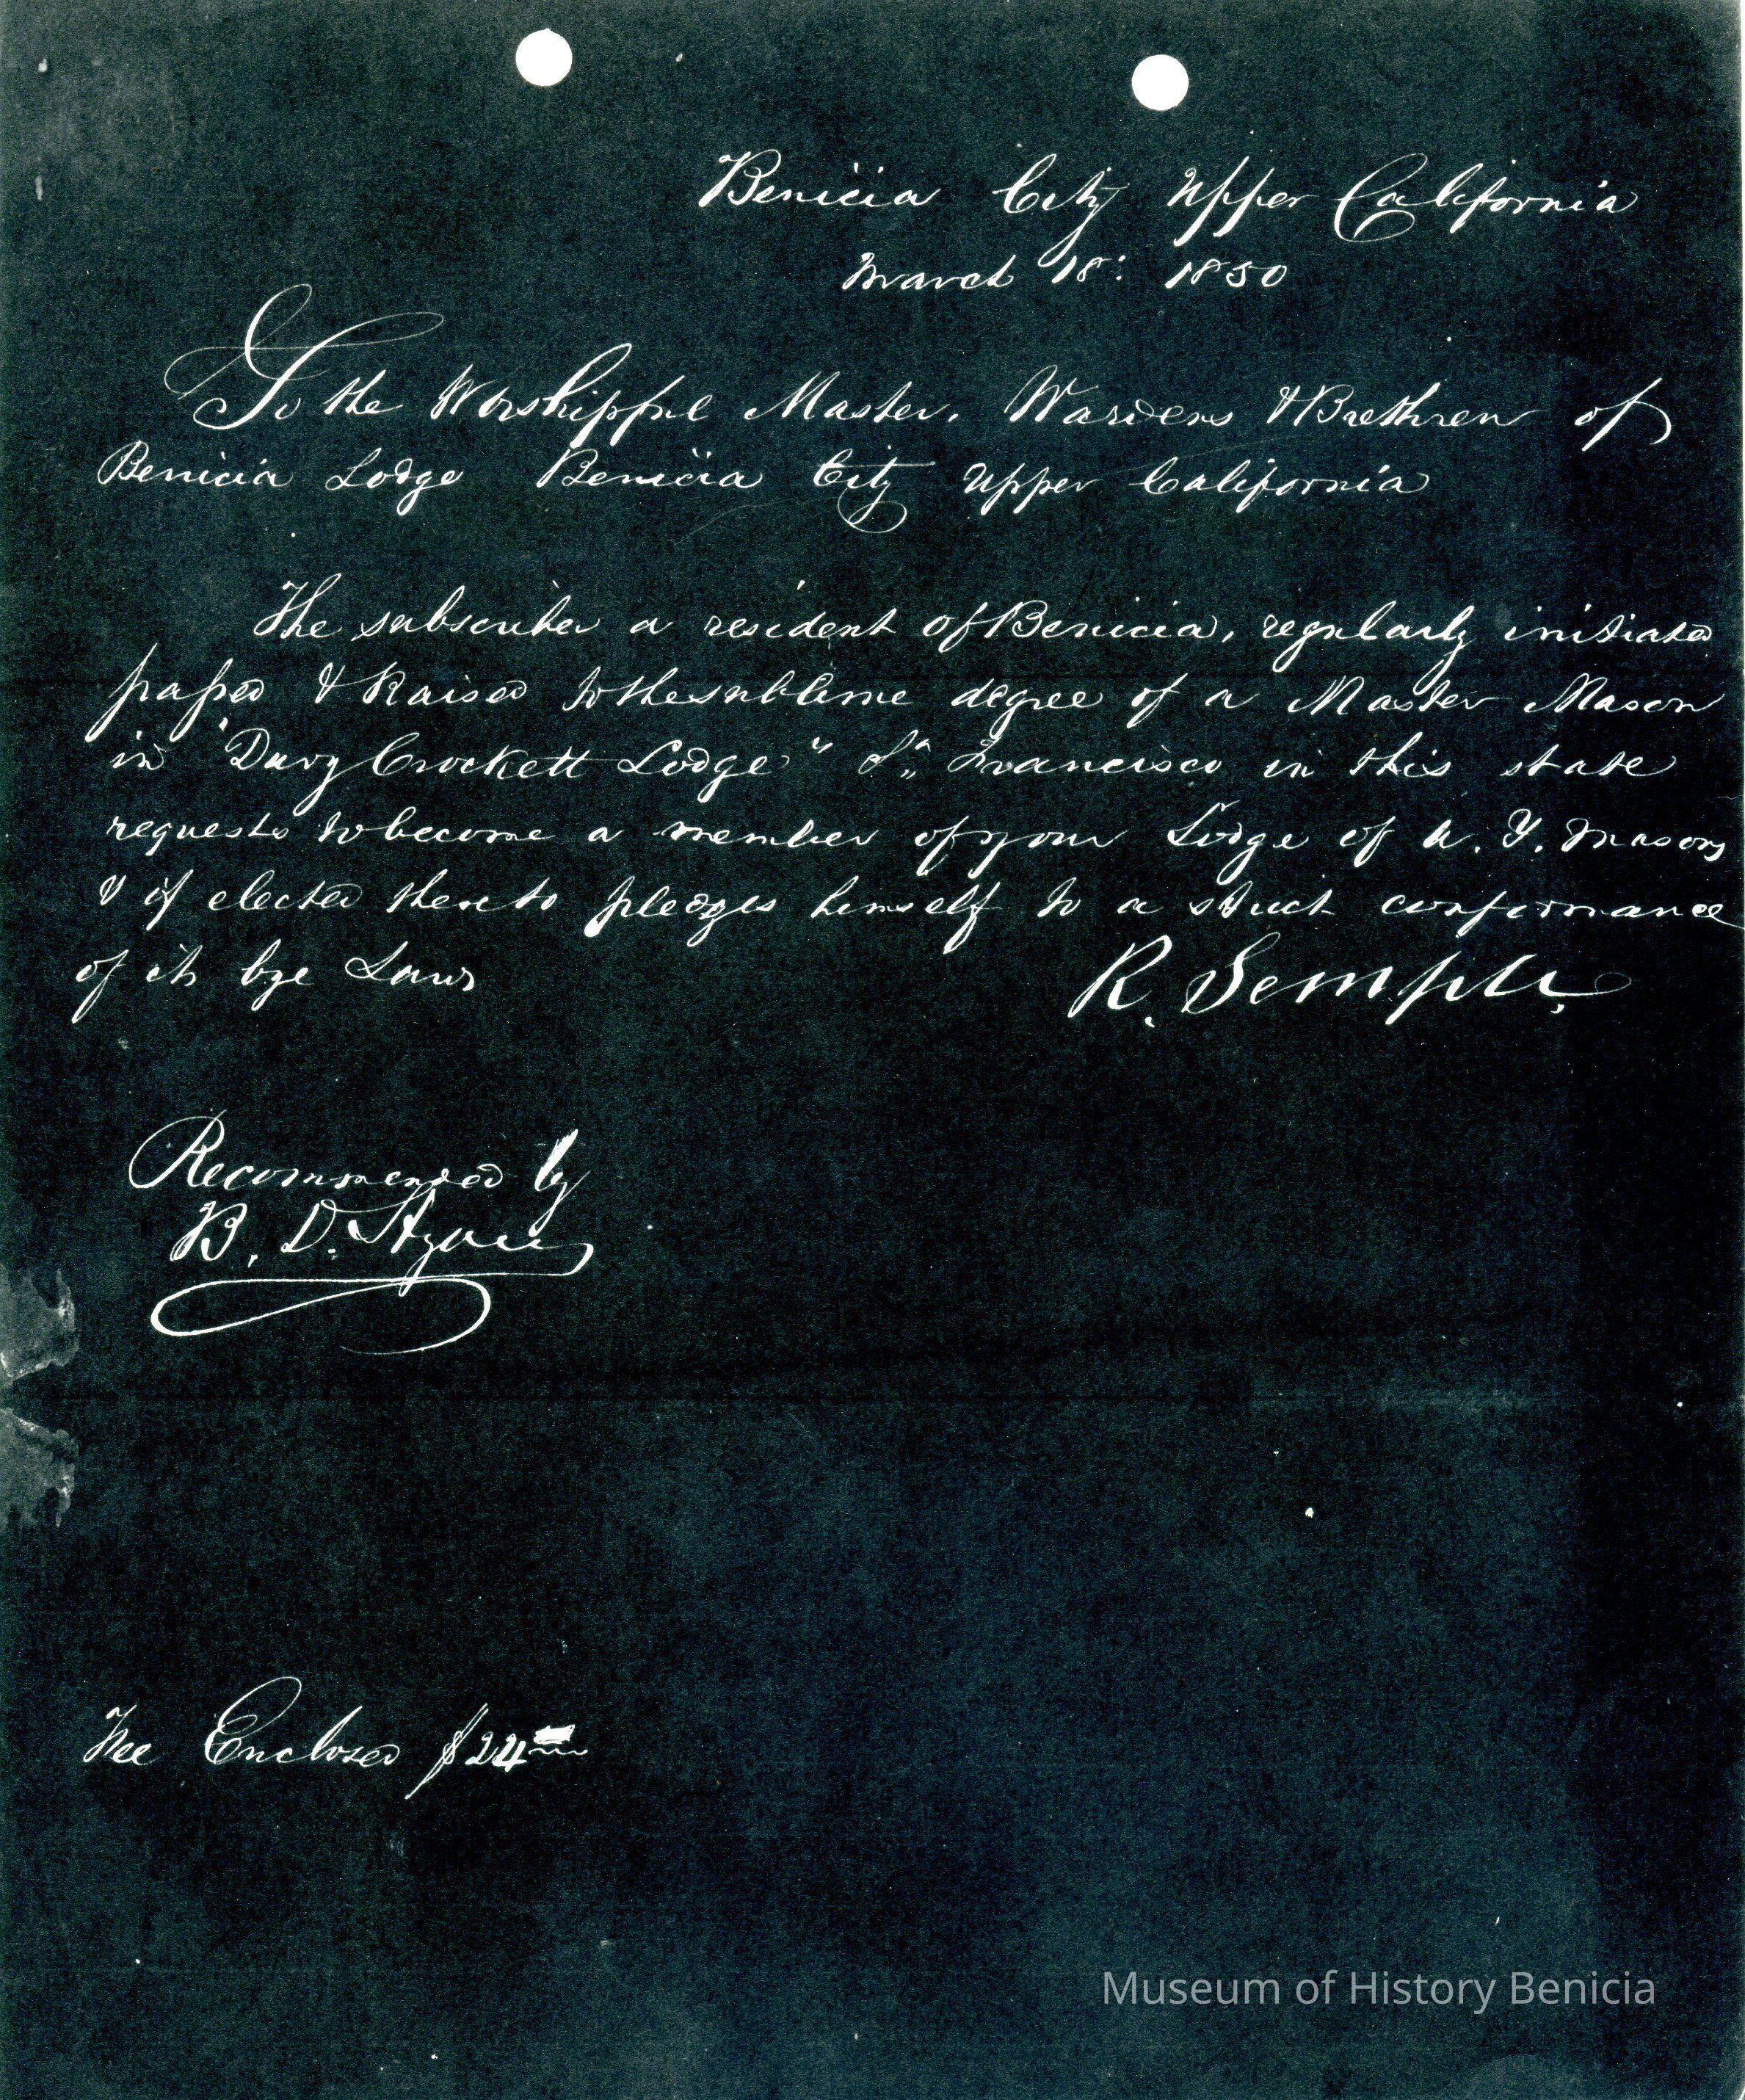 Benicia City Upper California
March 18: 1850
To the Worshipful Master, Wardens & Brethren of
Benicia Lodge Benicia City Upper California
The subscriber a resident of Benicia, regularly initiated
passed & Raised to the sublime degree of a Master Mason
in "Davy Crockett Lodge" Sn Francisco in this state
requests to become a member of your Lodge of A. Y. Masons
& if elected thereto pledges himself to a strict conformance
of its bye Laws
R. Semple.
Recommended by
B. D. Hyam
Fee Enclosed $24
Museum of History Benicia